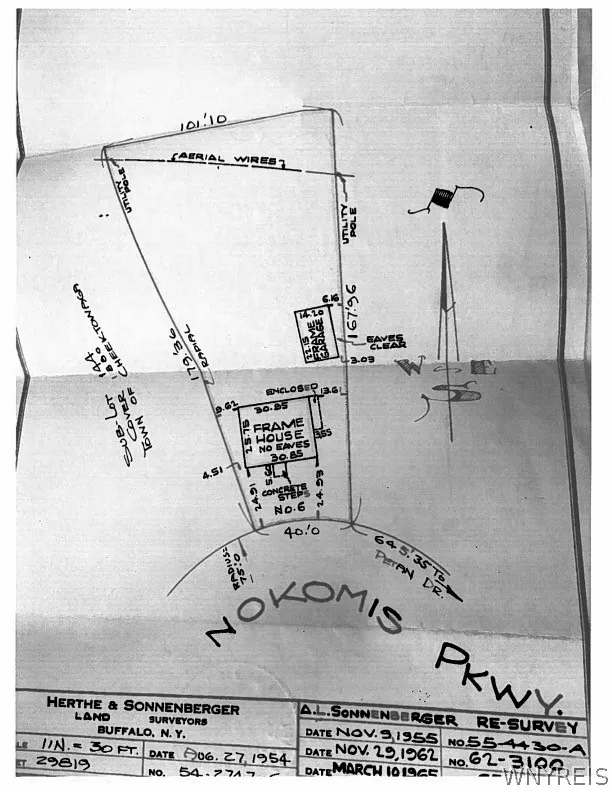 101.'10
AERIAL WIRES
UTILITY
POLE
UTILITY
POLE
6.16
14.20
22.15
FRAME
GARAGE
167.'96
EAVES
CLEAR
3.03
SUB. LOT 144
COVER 1800
TOWN OF CHEEKTOWAGA
179.'86
RADIAL
W
E
ENCLOSED
13.61
9.62
30.85
25.75
FRAME
HOUSE
NO EAVES
30.85
4.51
CONCRETE
STEPS
24.91
24.93
NO.6
40.'0
RADIUS=
75.'0
645.'35 TO
PETAN DR.
NOKOMIS PKWY.
HERTHE & SONNENBERGER
LAND SURVEYORS
BUFFALO, N.Y.
1 IN. = 30 FT.
DATE AUG. 27, 1954
29819
NO. 54-2747
A.L. SONNENBERGER RE-SURVEY
DATE NOV. 9, 1955 NO. 55-4430-A
DATE NOV. 29, 1962 NO. 62-3100
DATE MARCH 10, 1965
WNYREIS